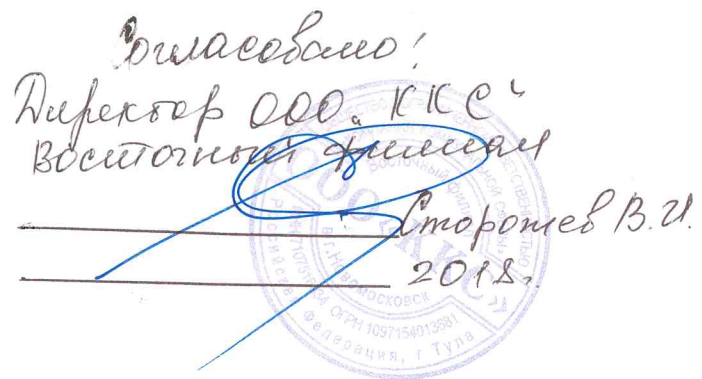 Согласовано!
Директор ООО "ККС"
Восточный филиал
Сторожев В.И.
2018г.
Восточный филиал
в г.Новомосковск
ОГРН 1097154013881
Российская Федерация, г Тула